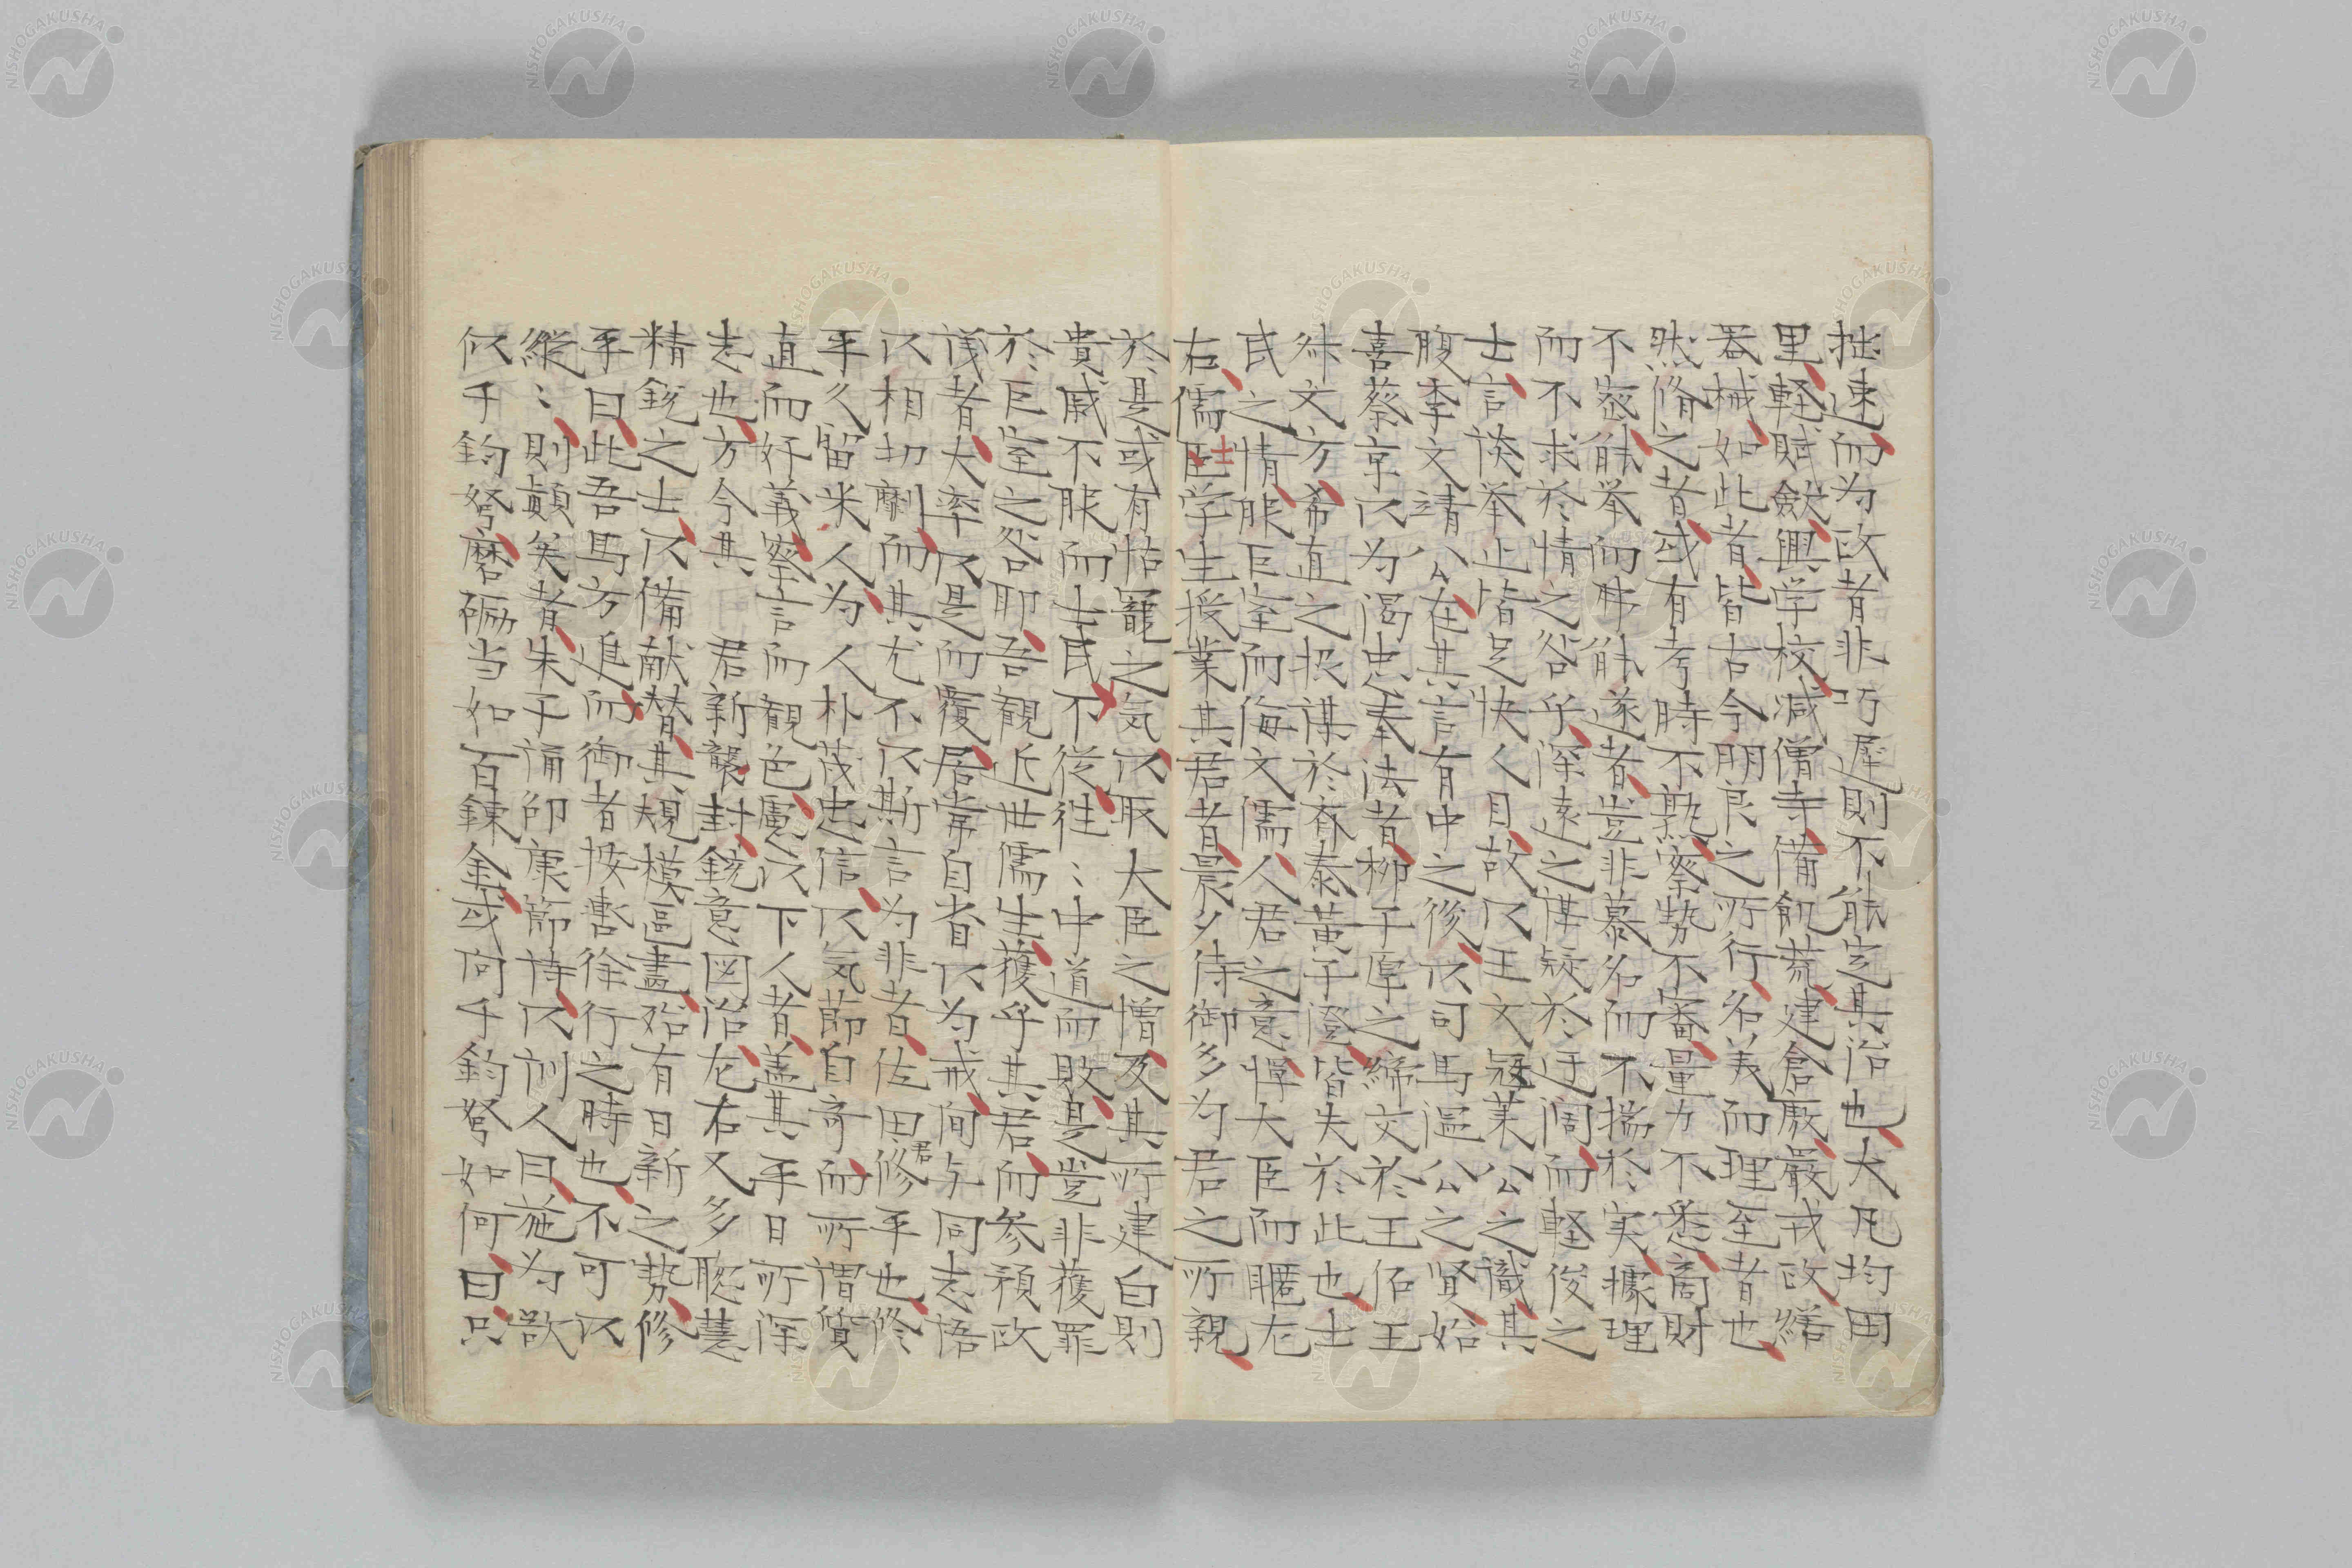 拙速、而为政者非巧遲則不能定其治也、大凡均田
里、軽賦斂、興学校、減僧寺、備飢荒、建倉廒、嚴戎政、繕
器械、如此者、皆古今明良之所行、名美而理至者也、
然脩之者、或有考時不熟、察勢不審、量力不悉、商財
不密、能挙而弗能遂者、豈非慕名而不揣於实、據理
而不求於情之咎乎、深遠之謀疑於迂闊、而軽俊之
士、言談挙止皆足快人目、故以王文冦莱公之識、其
腹李文靖公、在其言有中之後、以司馬温公之賢、始
喜蔡京以为渴忠奉法者、柳子厚之締文於王伾王
叔文、方希直之振謀於斉泰黄子澄、皆失於此也、士
民之情、眤巨室而侮文儒、人君之意、憚大臣而暱左
右、儒臣学生授業其君者、晨夕侍御多为君之所親、
於是或有恬寵之気、以取大臣之憎、及其所建白則
貴戚不眤而士民不従、往〻中道而敗、是豈非獲罪
於巨室之咎耶、吾観近世儒生、獲乎其君、而参預政
議者、大率以是而覆、居常自省以为戒、间与同志悟
以相切劘、而其尤不以斯言为非者、佐田修君平也、修
平久留米人、为人朴茂忠信、以気節自奇、而所謂質
直而好義、察言而観色、慮以下人者、盖其平日所深
志也、方今其 君新襲封、鋭意図治、左右又多聡慧
精鋭之士、以備献替、其規模區畫、殆有日新之勢、修
平曰、此吾馬方進、而御者按轡徐行之時也、不可以
縦〻、則顛矣者、朱子誦邵康節詩、以訓人曰、施为欲
似千鈞弩、磨砺当如百錬金、或问千鈞弩如何、曰、只